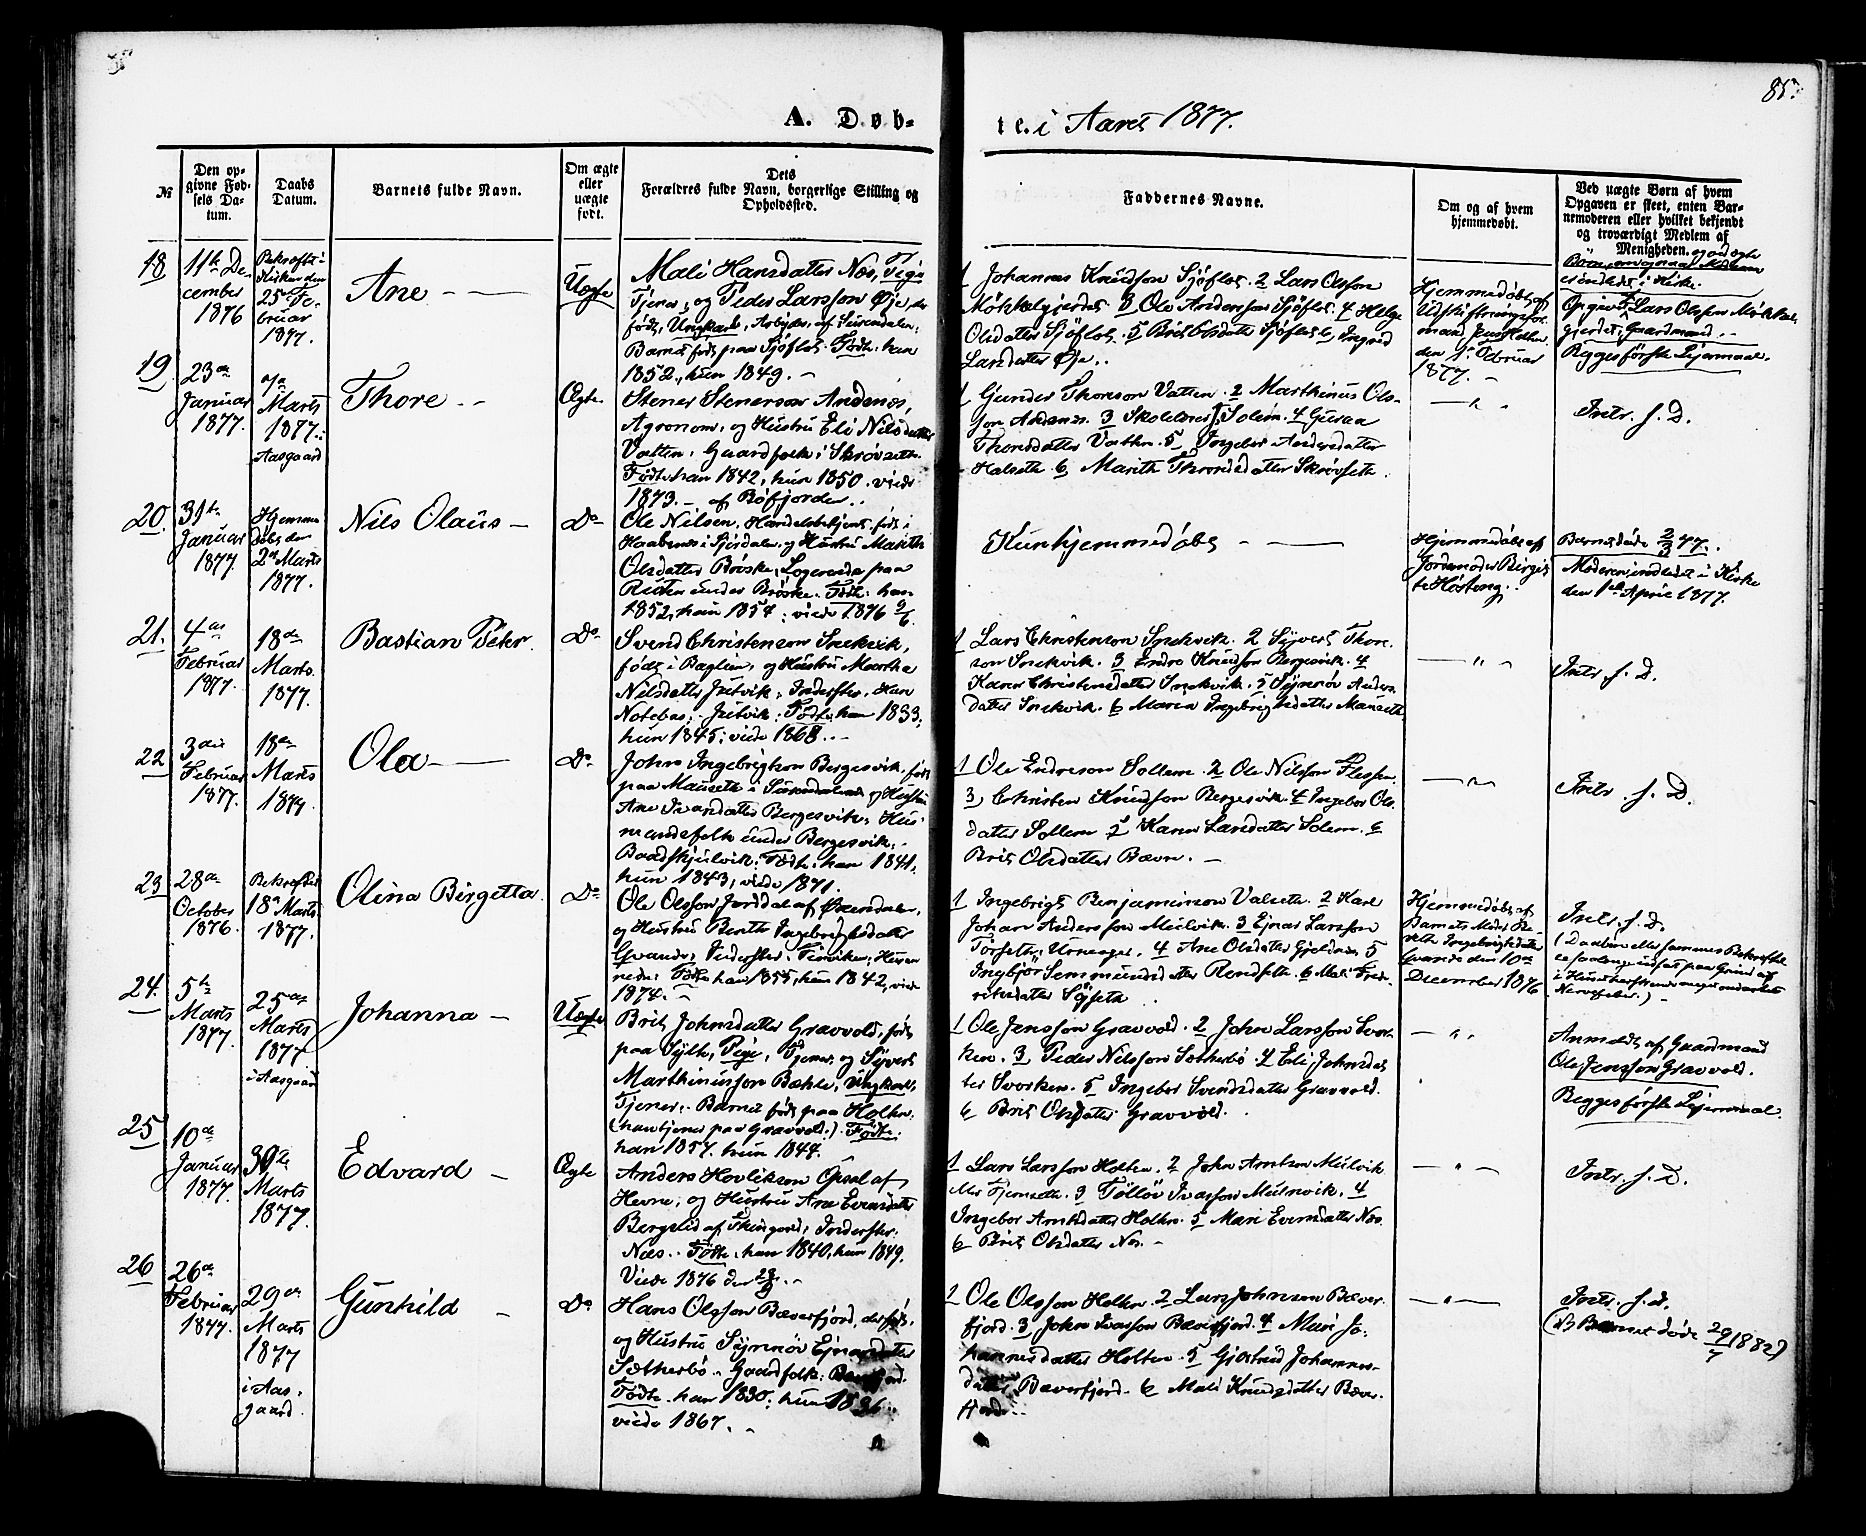 85.
A. Døb-
te. i Aaret 1877.
№
Den op-
givne Fød-
sels Da-
tum.
Daabs
Datum.
Barnets fulde Navn.
Om ægte
eller
uægte
født.
Dets
Forældres fulde Navn, borgerlige Stilling og
Opholdssted.
Faddernes Navne.
Om og af hvem
hjemmedøbt.
Ved uægte Børn af hvem
Opgaven er skeet, enten Bar-
nemoderen eller hvilket bekjendt
og troværdigt Medlem af
Menigheden.
18
11te De-
cember
1876
Bekræftet i
Kirken den
25de Fe-
bruar
1877.
Ane
Uægte
Mali Hansdatter Næs, Pige
Tjener, og Peder Larsson Øje, der
født, Ungkarl, Arbeider, af Surendalen.
Barnet født paa Sjøflot. Fødte: han
1852, hun 1849.
1 Johannes Knudson Sjøflot. 2 Lars Olsson
Møkkelgjerdet. 3 Ole Anderson Sjøflot. 4 Helge
Olsdatter Sjøflot. 5 Brit Olsdatter Sjøflot. 6 Ingrid
Larsdatter Øje.
Hjemmedøbt af
Udskiftningsfor-
mand
den 1ste Februar
1877.
Opgivet af Lars Olsson Møkkel-
gjerdet, Gaardmand.
Begges første Lejermaal.
19.
23de
Januar
1877.
Marts
1877.
Aasgaard
Thore
Ægte
Stener Stenerson Andenæs,
Agronom, og Hustru Eli Nilsdatter
Vatten, Gaardfolk i Skrøvseth.
Fødte han 1842, hun 1850. viede
1873. af Bøfjorden.
1 Gunder Thoreson Vatten. 2 Marthinus Ols-
son Andenæs. 3 Skolelærer Solem. 4 Guraa
Thoresdatter Vatten. 5 Ingebor Andersdatter
Halseth. 6 Marith Thoresdatter Skrøvseth.
Intr. s. D.
20.
31te
Januar
1877.
Hjemme
døbt den
2den Marts
1877.
Nils Olaus
Do
Ole Nilsen, Handelsbetjent, født i
og Hustru Marith
Olsdatter Brøske, Logerende paa
under Brøske. Fødte: han
1852, hun 1854; viede 1876
Kun hjemmedøbt
Hjemmedøbt af
Jordemoder Birgit-
te Høsteng.
Barnet døde 2/3 77.
Moderen indledet i Kirke
den 1ste April 1877.
21.
4de
Februar
1877.
18de
Marts
1877.
Bastian Peter.
Do
Svend Christenson Snekvik,
født i Bagleim, og Hustru Martha
Nilsdatter Jutvik; Inderster. Hun
Notebas, Jutvik: Fødte: han 1833;
hun 1845; viede 1868.
1 Lars Christenson Snekvik. 2 Sjvert Thore-
son Snekvik. 3 Endre Knudson Bergesvik. 4
Karen Christensdatter Snekvik. 5 Synnøv Anders-
datter Snekvik. 6 Maren Ingebrigtsdatter Mauseth.
Intr. s. D.
22
3die
Februar
1877.
18de
Marts
1877.
Ola
Do
John Ingebrigtson Bergesvik, født
paa Mauseth i Surendalen og Hustru
Ane Ivarsdatter Bergesvik; Hus-
mandsfolk under Bergesvik;
Baadskjulvik: Fødte: han 1841,
hun 1843, viede 1871.
1 Ole Endreson Sollem. 2 Ole Nilsson Flessen.
3 Christen Knudson Bergesvik. 4 Ingebor Ols-
datter Sollem. 5 Karen Larsdatter Solem. 6
Brit Olsdatter Bævre.
Intr. s. D.
23
28de
October
1876.
Bekræftet
18de Marts
1877.
Olina Birgetta.
Do
Ole Olsson Jorddal af Øxendalen,
og Hustru Berith Ingebrigtsdatter
Gvande; Indersfter;
Fødte han 1855, hun 1842, viede
1874.
1 Ingebrigt Benjaminson Valseth. 2 Karl
Johan Andersson Mulvik. 3 Ejnar Larsson
Torseth, Urnenger. 4 Ane Olsdatter Gjeldnes. 5
Ingbjør Semmundsdatter Rendseth. 6 Mali Fred-
riksdatter Sæseth.
Hjemmedøbt af
Barnets Moder Be-
reth Ingebrigtsdatter
Gvande den 10de
December 1876
Intr. s. D.
24.
5te
Marts
1877.
25de
Marts
1877
i Aasgaard
Johanna
Uægte
Brit Johnsdatter Gravvold, født
paa Sylte, Pige, Tjener, og Syvert
Marthinusson Bækle, Ungkarl,
Tjener. Barnet født paa Holten.
(han tjener paa Gravvold.) Fødte:
han 1857. hun 1844.
1 Ole Jensson Gravvold. 2 John Larsson Svor-
ken. 3 Peder Nilsson Sætherbø. 4 Eli Johnsdat-
ter Svorken. 5 Ingebor Svendsdatter Gravvold.
6 Brit Olsdatter Gravvold.
Anmeldt af Gaardmand
Ole Jensson Gravvold.
Begges første Lejermaal.
25
10de
Januar
1877.
30te
Marts
1877.
Edvard
Ægte
Anders Hovlikson Opsal af
Hevne, og Hustru Ane Evensdatter
Bergslid af Stangvik; Indersfter:
Næs. Fødte: han 1840, hun 1849.
Viede 1876 den
1 Lars Larsson Holten. 2 John Arntson Mulvik
eller Tjernseth. 3 Tølløv Ivarsson Mulvik. 4
Ingebor Arntsdatter Holten. 5 Mari Evensdatter Næs.
6 Brit Olsdatter Næs.
Intr. s. D.
26
26de
Februar
1877.
29de
Marts
1877
i Aas-
gaard.
Gunhild
Do
Hans Olsson Bæverfjord, der født,
og Hustru Synnøv Ejnarsdatter
Sætherbø. Gaardfolk: Bæverfjord.
Fødte: han 1830; hun 1836.
viede 1867.
1 Ole Olsson Holten. 2 Lars Johnson Bæver-
fjord. 3 John Ivarsson Bæverfjord. 4 Mari Jo-
hannesdatter Holten. 5 Gjertrud Johannes-
datter Bæverfjord. 6 Mali Knudsdatter Bæver-
fjord.
Intr. s. D.
(Barnet døde 29/7 1882)